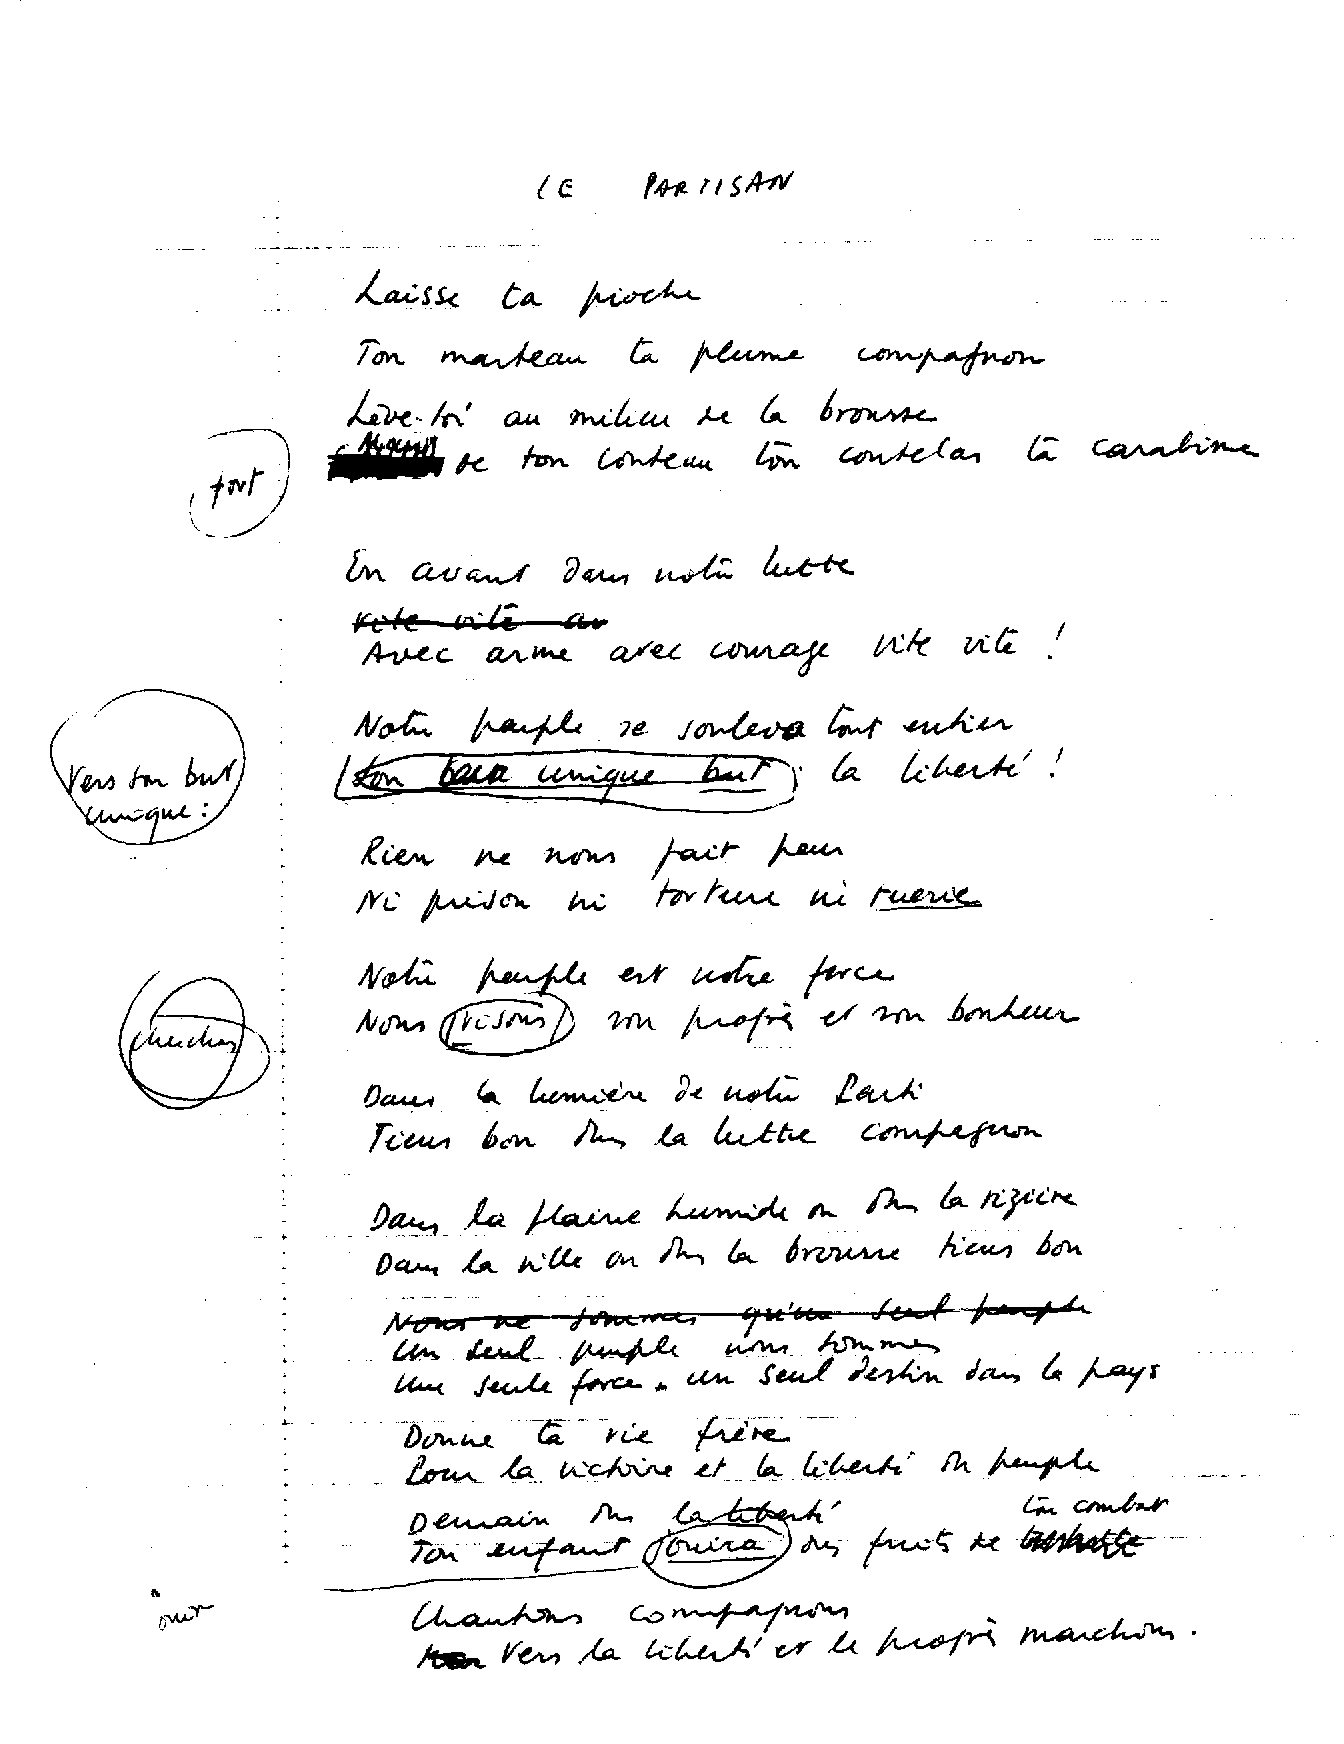 LE PARTISAN
Laisse ta pioche
Ton marteau ta plume compagnon
Lève-toi au milieu de la brousse
fort
de ton couteau ton coutelas ta carabine
En avant dans notre lutte
vite vite av
Avec arme avec courage vite vite !
Notre peuple se souleva tout entier
Vers son but
unique :
son unique but : la liberté !
Rien ne nous fait peur
Ni prison ni torture ni tuerie
Notre peuple est notre force
Nous visons son progrès et son bonheur
Dans la lumière de notre Parti
Tiens bon dans la lutte compagnon
Dans la plaine humide ou dans la rizière
Dans la ville ou dans la brousse tiens bon
Nous ne sommes qu'un seul peuple
Un seul peuple nous sommes
Une seule force un seul destin dans le pays
Donne ta vie frère
Pour la victoire et la liberté du peuple
Demain dans la liberté
ton combat
Ton enfant jouira des fruits de
Chantons compagnons
Vers la liberté et le progrès marchons.